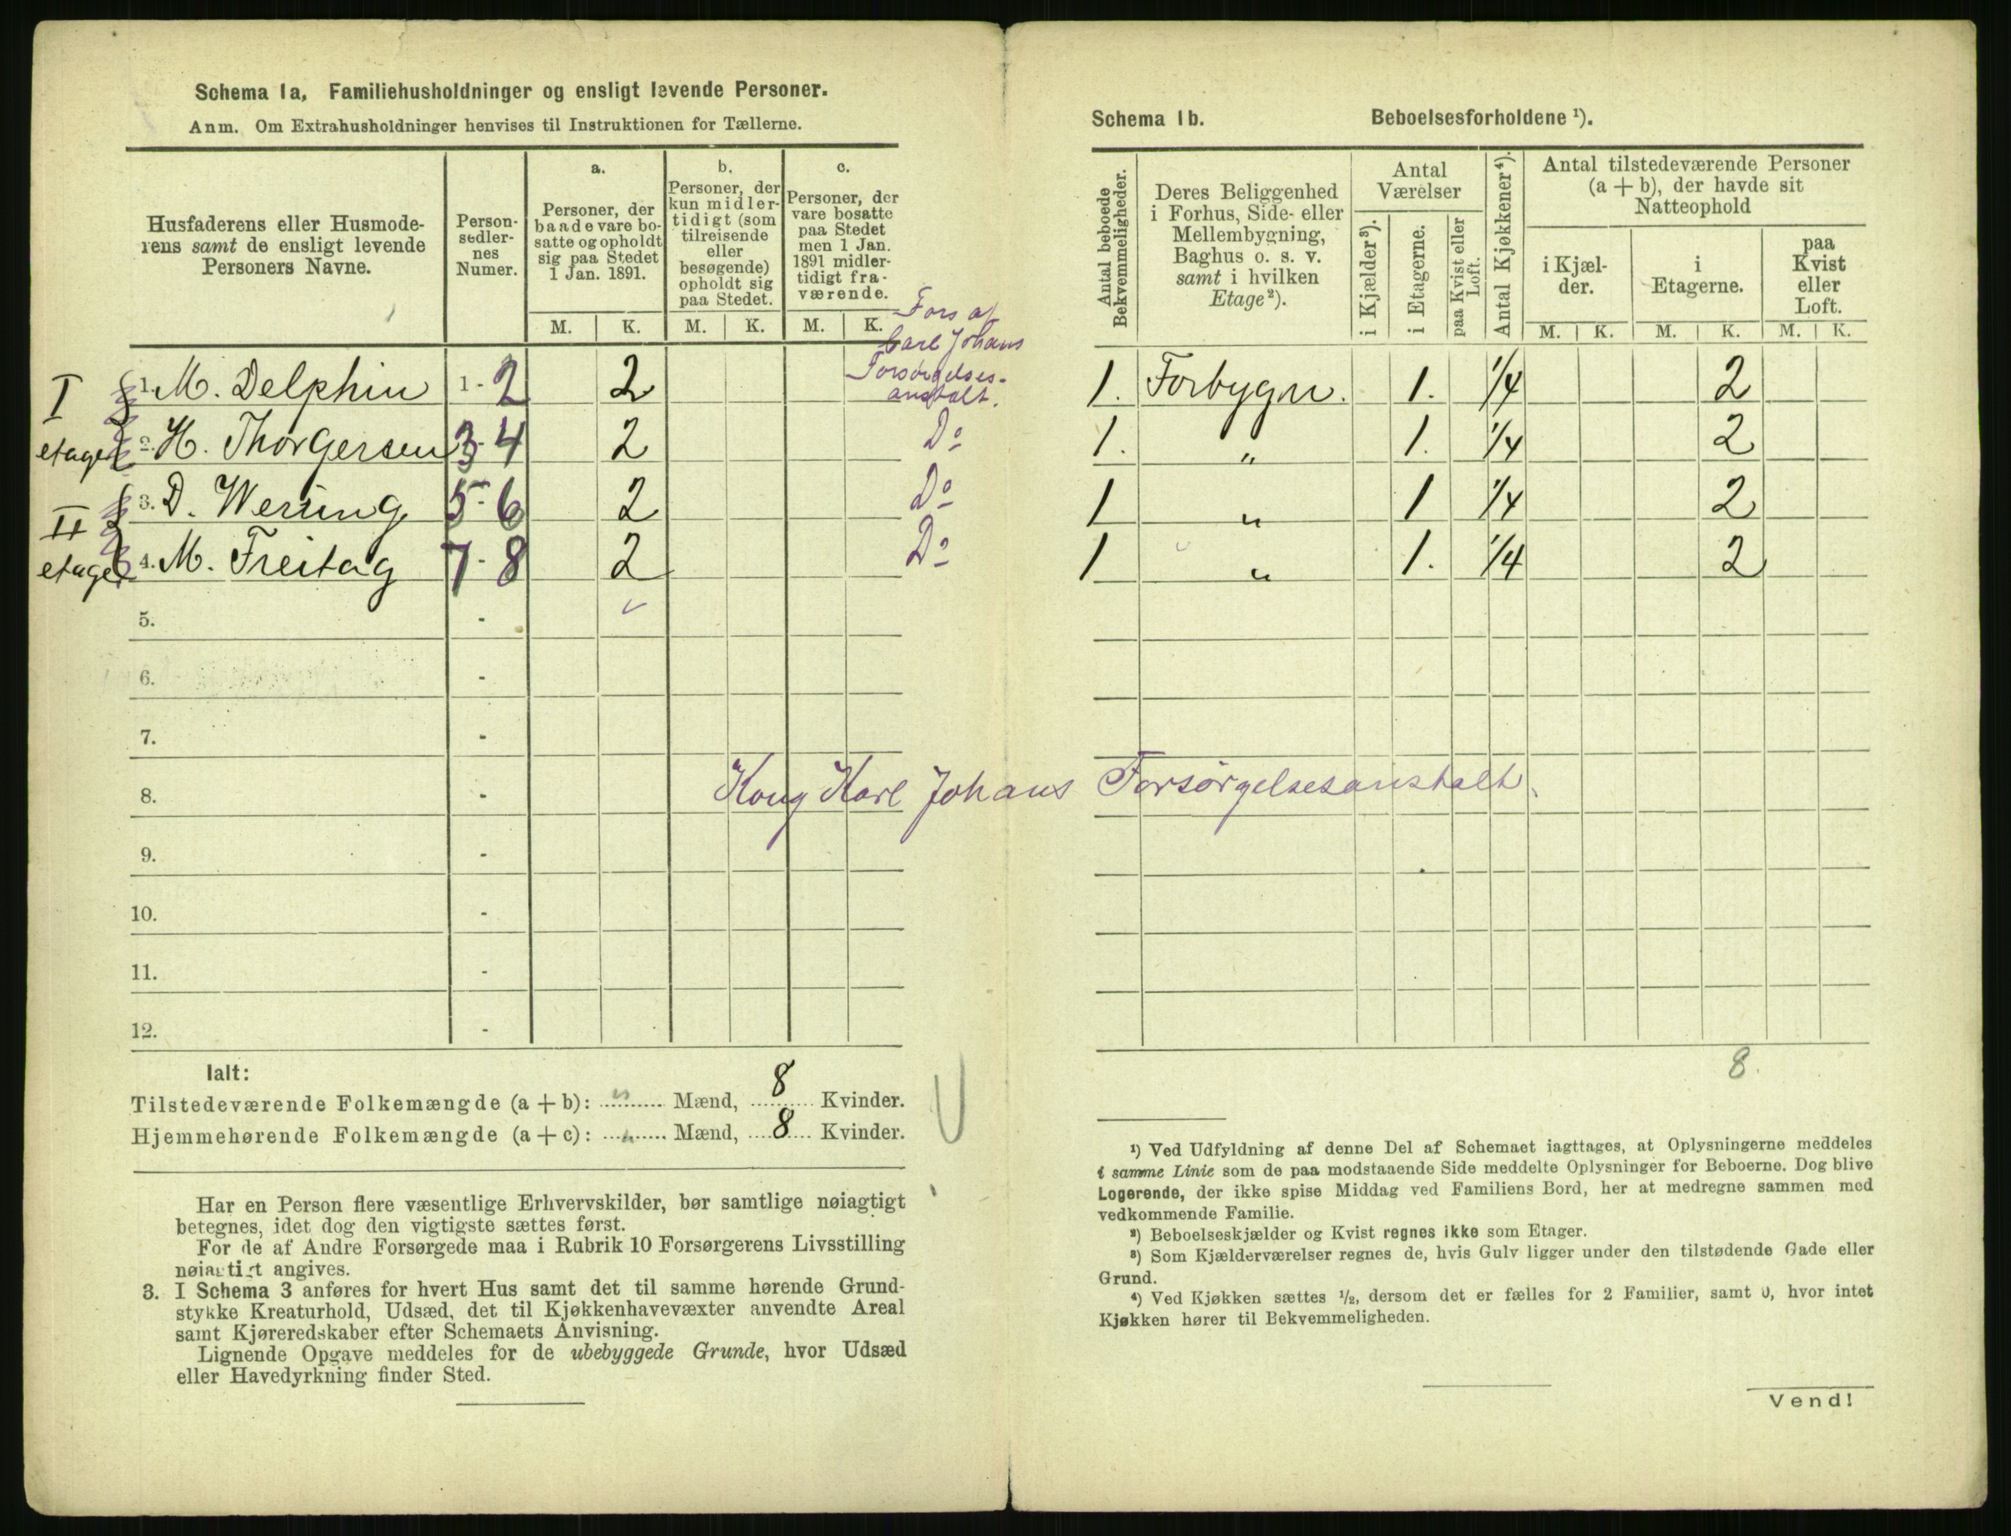 Schema 1a, Familiehusholdninger og ensligt levende Personer.
Anm. Om Extrahusholdninger henvises til Instruktionen for Tællerne.
Husfaderens eller Husmode-
rens samt de ensligt levende
Personers Navne.
Person-
sedler-
nes
Numer.
a.
Personer, der
baade vare bo-
satte og opholdt
sig paa Stedet
1 Jan. 1891.
b.
Personer, der
kun midler-
tidigt (som
tilreisende
eller
besøgende)
opholdt sig
paa Stedet.
c.
Personer, der
vare bosatte
paa Stedet
men 1 Jan.
1891 midler-
tidigt fra-
værende.
M. K. M. K. M. K.
Fors af
Carl Johans
Forsørgelses-
anstalt.
I
etage
1. M. Delphin 1-2 2
2. H. Thorgersen 3-4 2 Do
II
etage
3. D. Wering 5-6 2 Do
4. M. Freitag 7-8 2 Do
5. -
6. -
7. -
8. -
Kong Karl Johans Forsørgelsesanstalt.
9. -
10. -
11. -
12. -
Ialt:
Tilstedeværende Folkemængde (a + b): " Mænd, 8 Kvinder.
Hjemmehørende Folkemængde (a + c): " Mænd, 8 Kvinder.
Har en Person flere væsentlige Erhvervskilder, bør samtlige nøiagtigt
betegnes, idet dog den vigtigste sættes først.
For de af Andre Forsørgede maa i Rubrik 10 Forsørgerens Livsstilling
nøiagtigt angives.
3. I Schema 3 anføres for hvert Hus samt det til samme hørende Grund-
stykke Kreaturhold, Udsæd, det til Kjøkkenhavevæxter anvendte Areal
samt Kjøreredskaber efter Schemaets Anvisning.
Lignende Opgave meddeles for de ubebyggede Grunde, hvor Udsæd
eller Havedyrkning finder Sted.
Schema 1b. Beboelsesforholdene ¹).
Antal beboede
Bekvemmeligheder.
Deres Beliggenhed
i Forhus, Side- eller
Mellembygning,
Baghus o. s. v.
samt i hvilken
Etage ²).
Antal
Værelser
i Kjælder ³).
i Etagerne.
paa Kvist eller
Loft.
Antal Kjøkkener ⁴).
Antal tilstedeværende Personer
(a + b), der havde sit
Natteophold
i Kjæl-
der.
i
Etagerne.
paa
Kvist
eller
Loft.
M. K. M. K. M. K.
1. Forbygn. 1. 1/4 2
1. " 1. 1/4 2
1 " 1 1/4 2
1 " 1. 1/4 2
8.
¹) Ved Udfyldning af denne Del af Schemaet iagttages, at Oplysningerne meddeles
i samme Linie som de paa modstaaende Side meddelte Oplysninger for Beboerne. Dog blive
Logerende, der ikke spise Middag ved Familiens Bord, her at medregne sammen med
vedkommende Familie.
²) Beboelseskjælder og Kvist regnes ikke som Etager.
³) Som Kjælderværelser regnes de, hvis Gulv ligger under den tilstødende Gade eller
Grund.
⁴) Ved Kjøkken sættes ½, dersom det er fælles for 2 Familier, samt 0, hvor intet
Kjøkken hører til Bekvemmeligheden.
Vend!